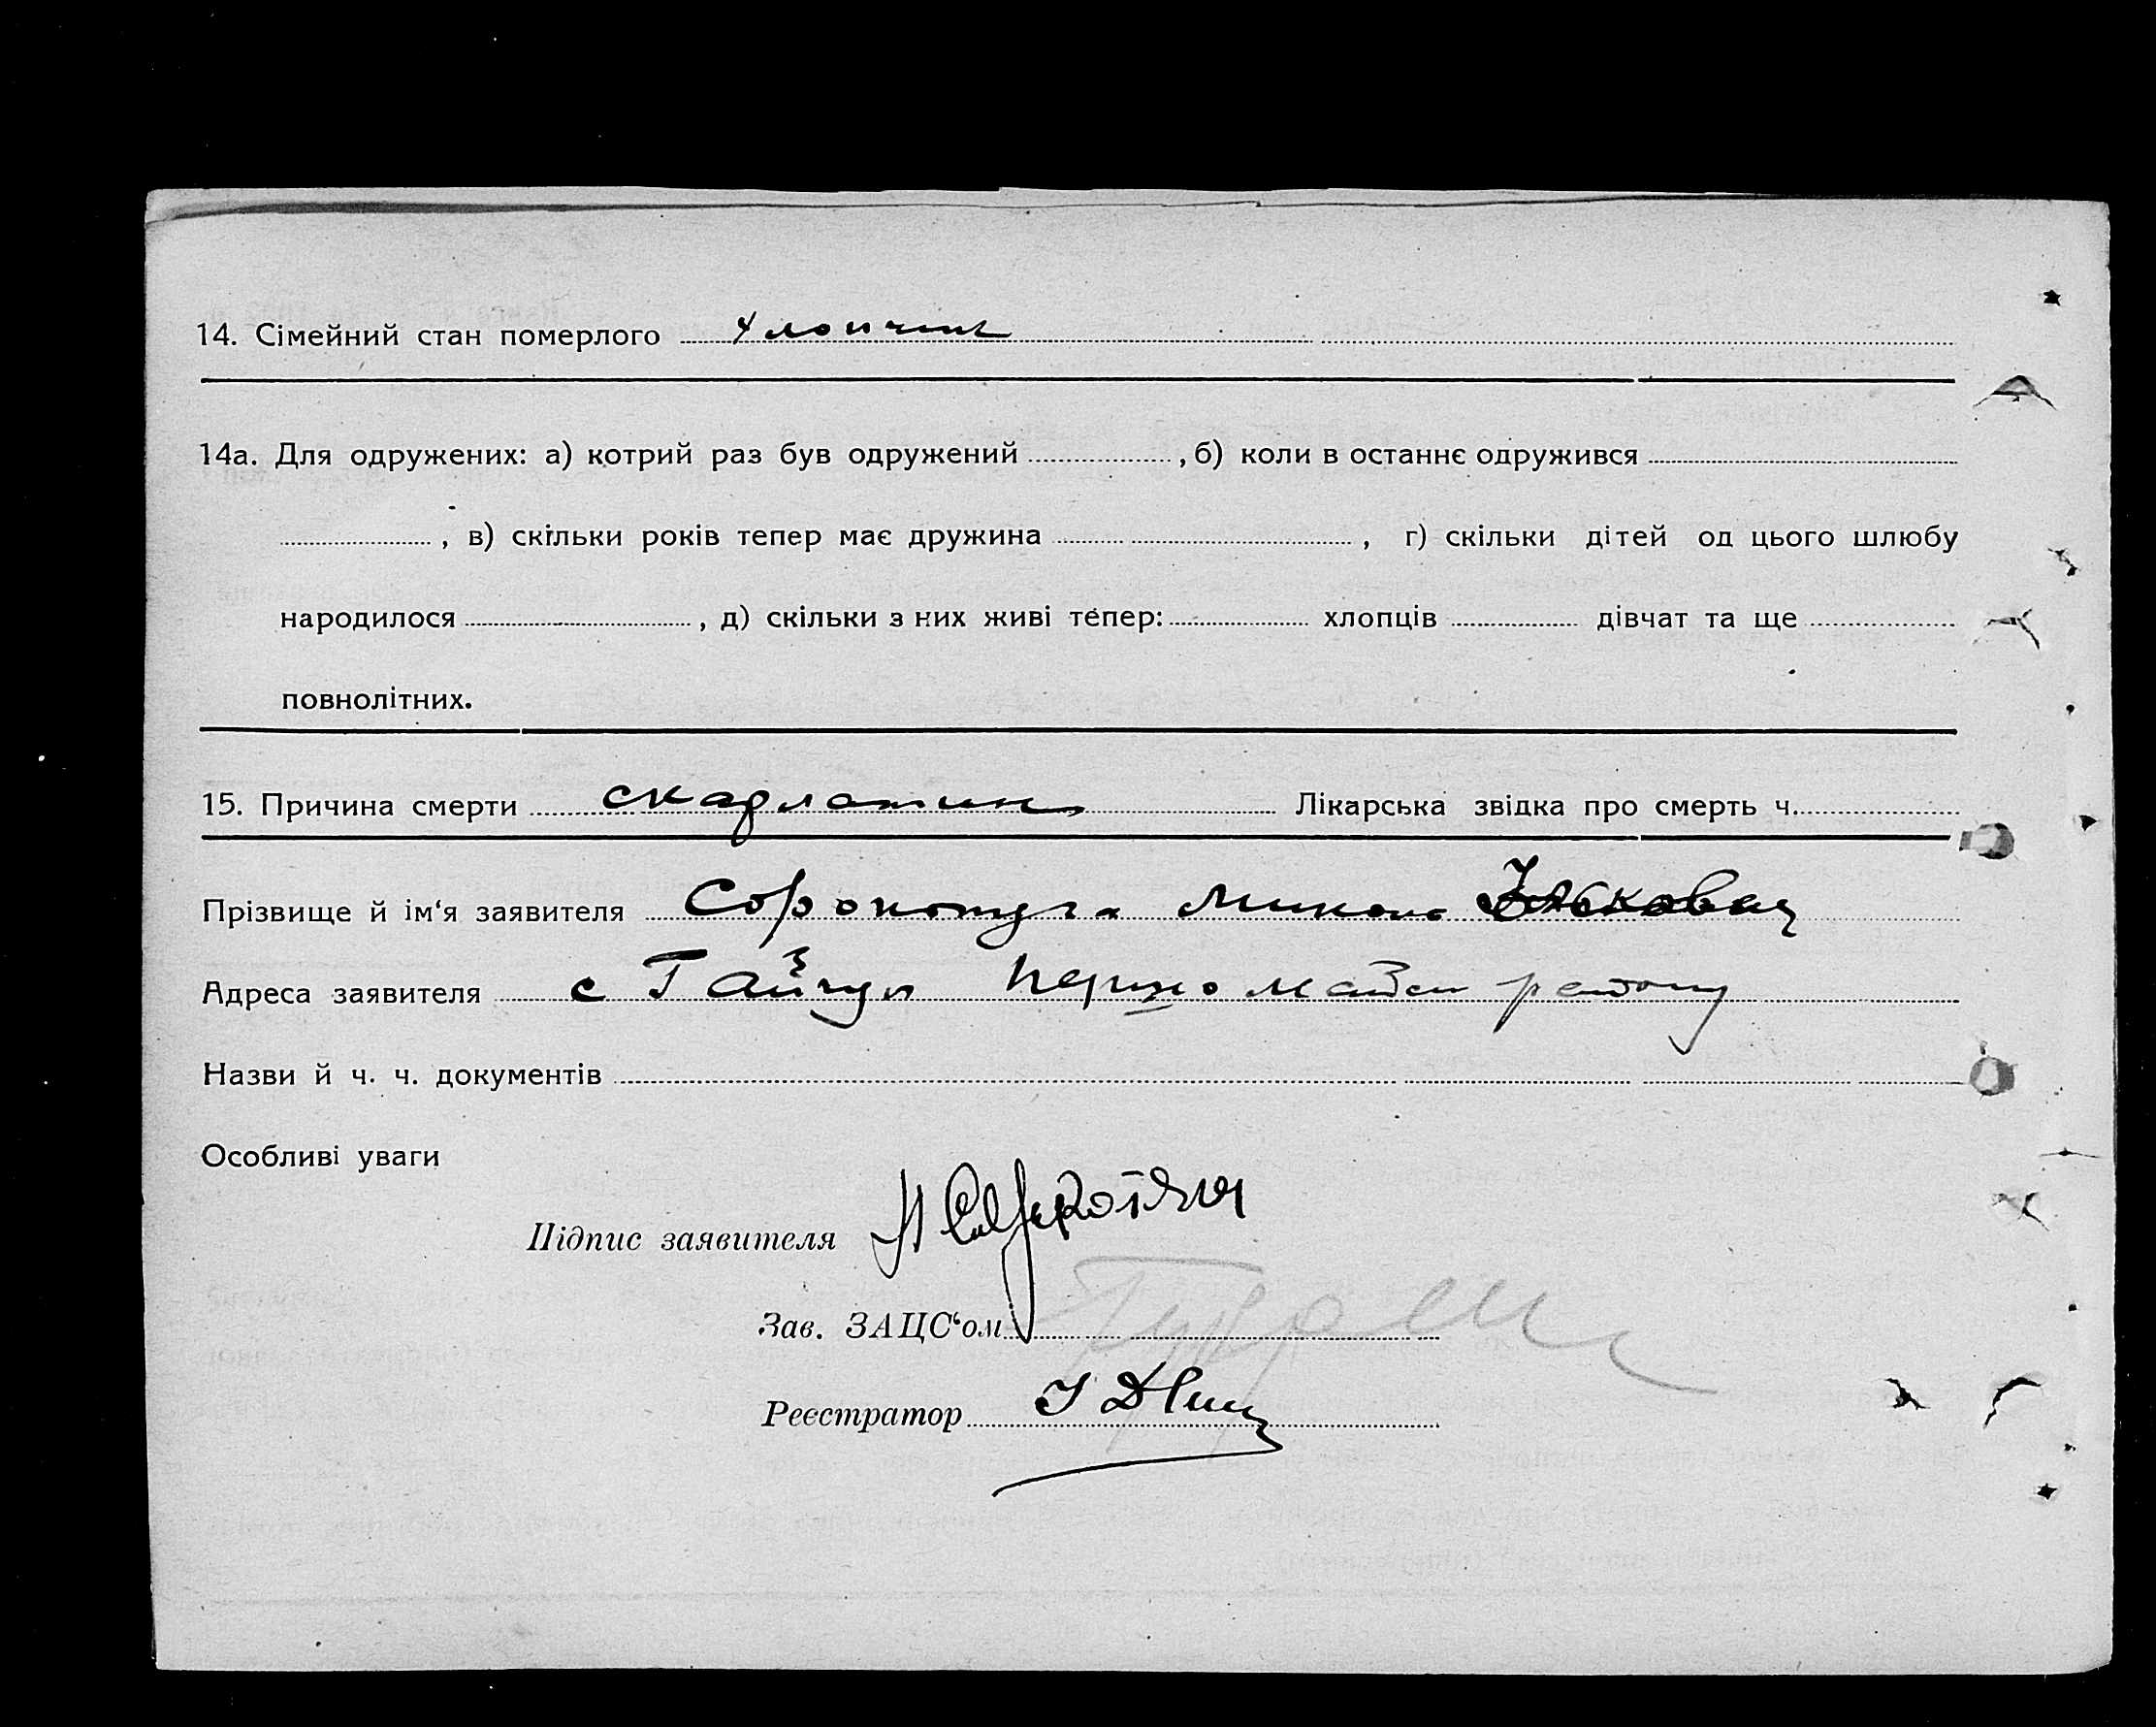 14. Сімейний стан померлого хлопчик
14а. Для одружених: а) котрий раз був одружений , б) коли в останнє одружився
, в) скільки років тепер має дружина , г) скільки дітей од цього шлюбу
народилося , д) скільки з них живі тепер: хлопців дівчат та ще
повнолітних.
15. Причина смерти скарлатина Лікарська звідка про смерть ч.
Прізвище й ім‘я заявителя Сорокотяга Микола
Адреса заявителя с Гайчул Першомайськ району
Назви й ч. ч. документів
Особливі уваги
Підпис заявителя
Зав. ЗАЦС‘ом
Реєстратор